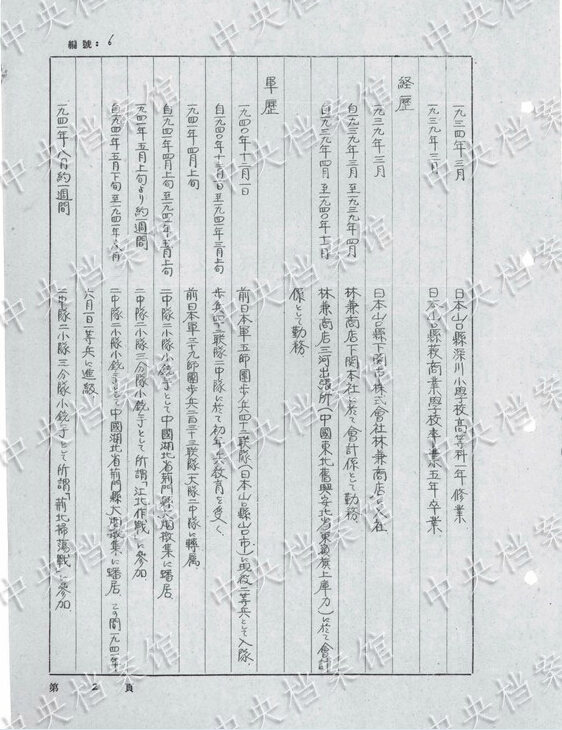 編號：6
一九三四年三月　日本山口縣深川小學校高等科一年修業
一九三九年三月　日本山口縣萩商業學校五年卒業
経歴
一九三九年三月　日本山口縣下関市株式會社林兼商店に入社
自一九三九年三月至一九三九年四月　林兼商店下関本社に於て會計係として勤務
自一九三九年四月至一九四〇年十一月　林兼商店三河出張所（中國東北舊興安北省上庫力）に於て會計
係として勤務
軍歴
一九四〇年十二月一日　前日本軍五師團歩兵四十二联隊（日本山口縣山口市）に現役二等兵として入隊
自一九四〇年十二月一日至一九四一年三月上旬　歩兵四十二联隊二中隊に於て初年兵教育を受く
一九四一年四月上旬　前日本軍三十九師團歩兵二百三十三联隊一大隊二中隊に轉属
自一九四一年四月上旬至一九四一年五月上旬　二中隊二小隊小銃手として中國湖北省荊門縣集に蟠居
一九四一年五月上旬より約一週間　二中隊二小隊三分隊小銃手として所謂「江北作戦」に参加
自一九四一年五月下旬至一九四一年八月　二中隊二小隊小銃手として中國湖北省荊門縣集に蟠居　この間一九四一年
六月一日一等兵に進級
一九四一年八月約一週間　二中隊二小隊三分隊小銃手として所謂「荊北掃蕩戦」に参加
第 2 頁
中央档案馆